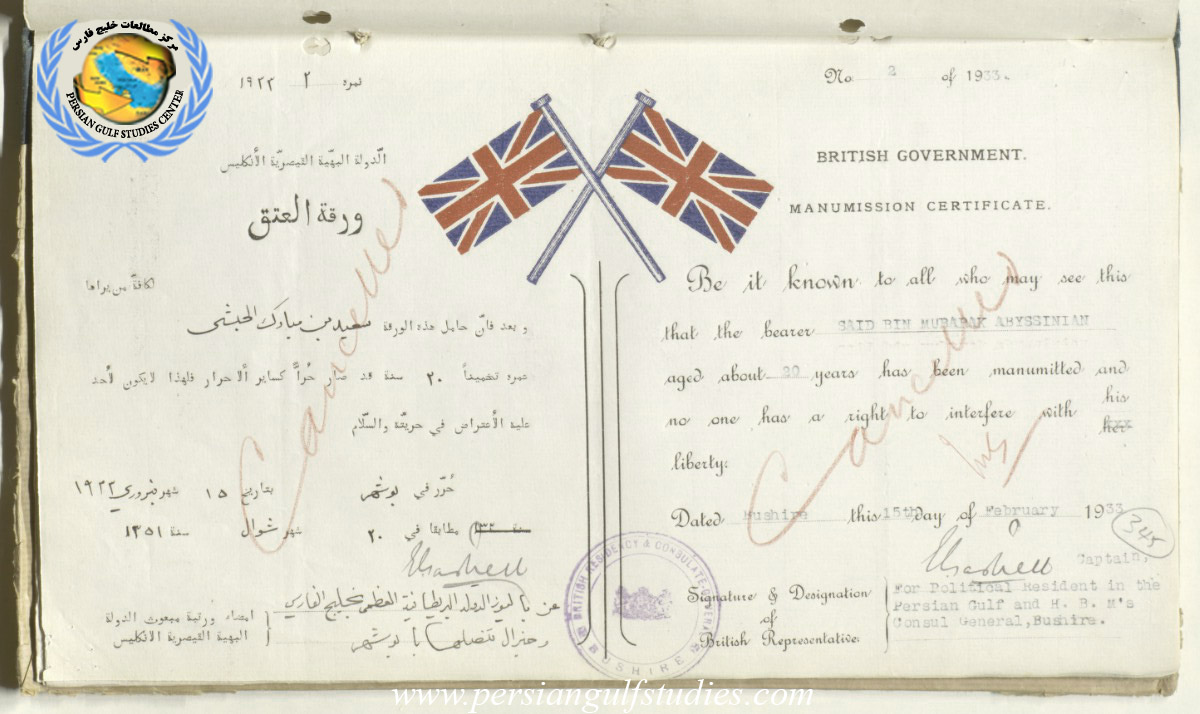 مركز مطالعات خليج فارس
PERSIAN GULF STUDIES CENTER
نمره ٢ ١٩٣٣
الدّولة البهيّة القيصريّة الأنكليس
ورقة العتق
لكافّة من يراها
و بعد فانّ حامل هذه الورقة سعيد بن مبارك الحبشى
عمره تخميناً ٢٠ سنة قد صار حُرّاً كساير الاحرار فلهذا لايكون لأحد
عليه الأعتراض في حريّته والسّلام
حُرّر في بوشهر بتاريخ ١٥ شهر فبروري ١٩٣٣
سنة مطابقا في ٢٠ شهر شوال سنة ١٣٥١
امضاء ورتبة مبعوث الدولة
البهية القيصرية الانكليس
عن باليوز الدولة البريطانية العظمى بخليج الفارسي
وجنرال قنصلها بابوشهر
No. 2 of 1933.
BRITISH GOVERNMENT.
MANUMISSION CERTIFICATE.
Be it known to all who may see this
that the bearer SAID BIN MUBARAK ABYSSINIAN
aged about 20 years has been manumitted and
no one has a right to interfere with his her
liberty.
Dated Bushire this 15th day of February 1933
345
Captain,
Signature & Designation
of
British Representative.
For Political Resident in the
Persian Gulf and H. B. M's
Consul General, Bushire.
Cancelled
Cancelled
BRITISH RESIDENCY & CONSULATE GENERAL
BUSHIRE
www.persiangulfstudies.com